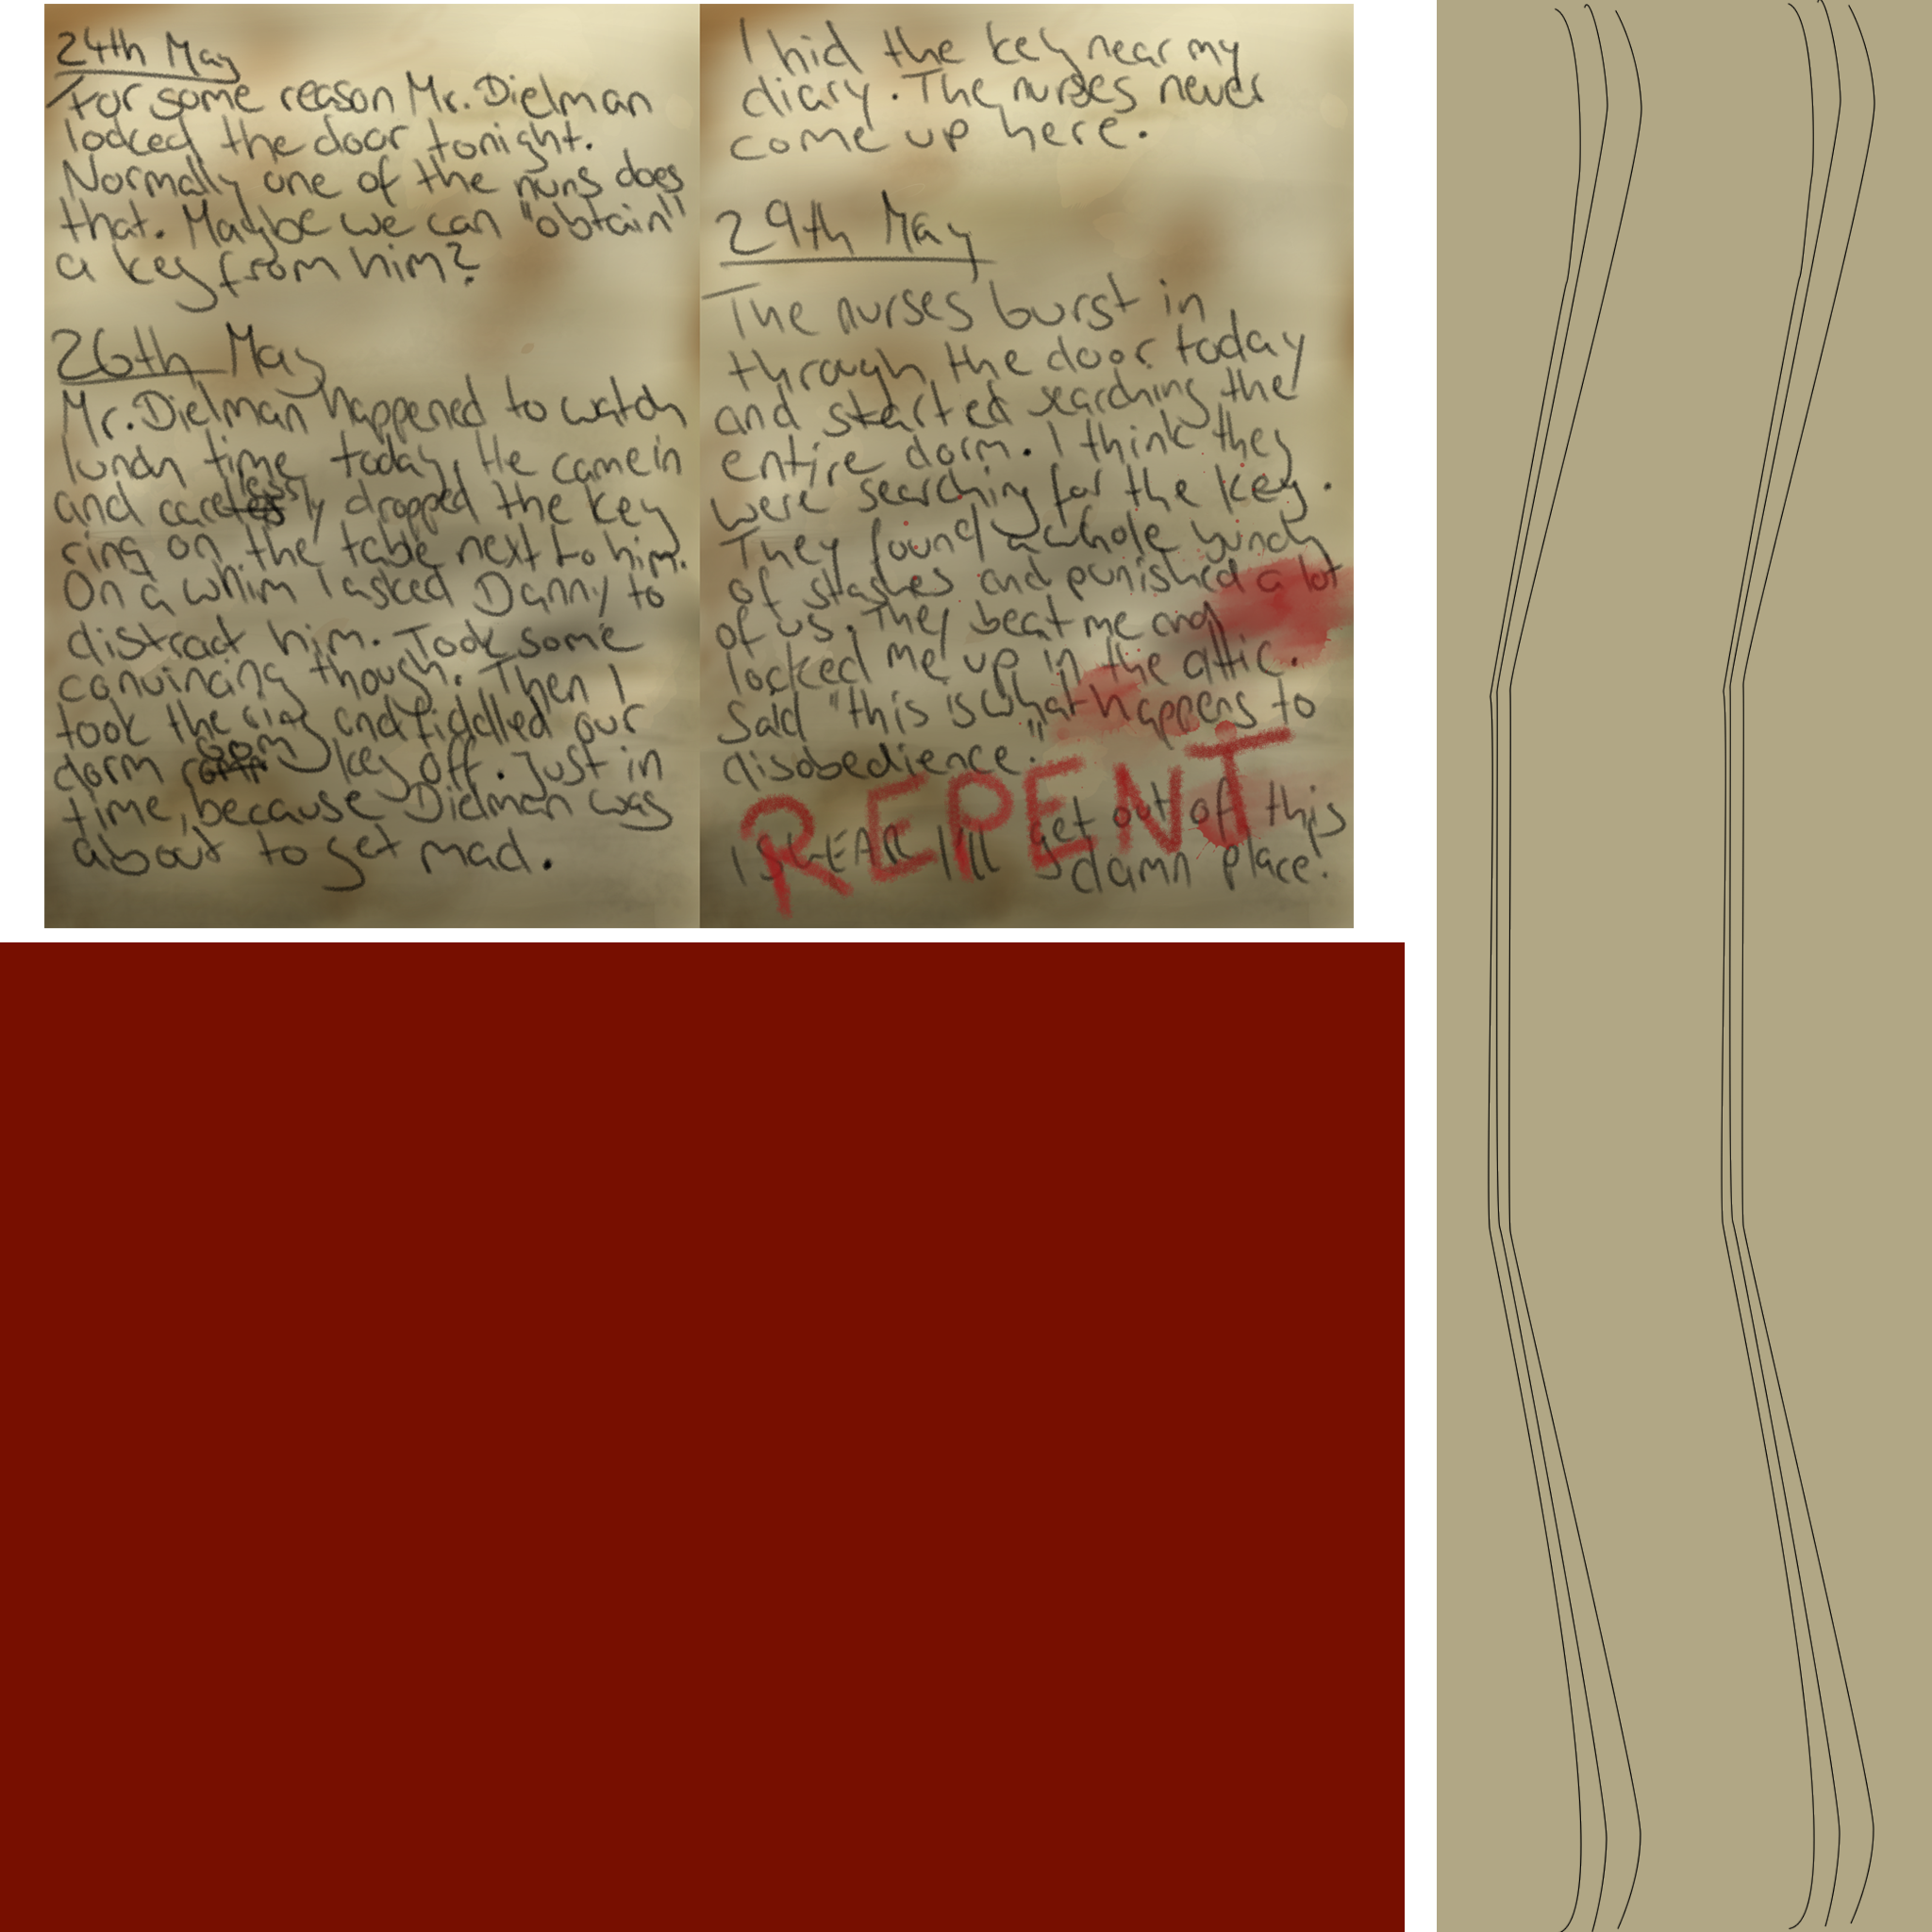 24th May
For some reason Mr. Dielman
locked the door tonight.
Normally one of the nuns does
that. Maybe we can "obtain"
a key from him?
26th May
Mr. Dielman happened to watch
lunch time today. He came in
and carelessly dropped the key
ring on the table next to him.
On a whim I asked Danny to
distract him. Took some
convincing though. Then I
took the ring and fiddled our
dorm room key off. Just in
time, because Dielman was
about to get mad.
I hid the key near my
diary. The nurses never
come up here.
29th May
The nurses burst in
through the door today
and started searching the
entire dorm. I think they
were searching for the key.
They found a whole bunch
of stashes and punished a lot
of us. They beat me and
locked me up in the attic.
Said "this is what happens to
disobedience."
REPENT
I SWEAR I'll get out of this
damn place!